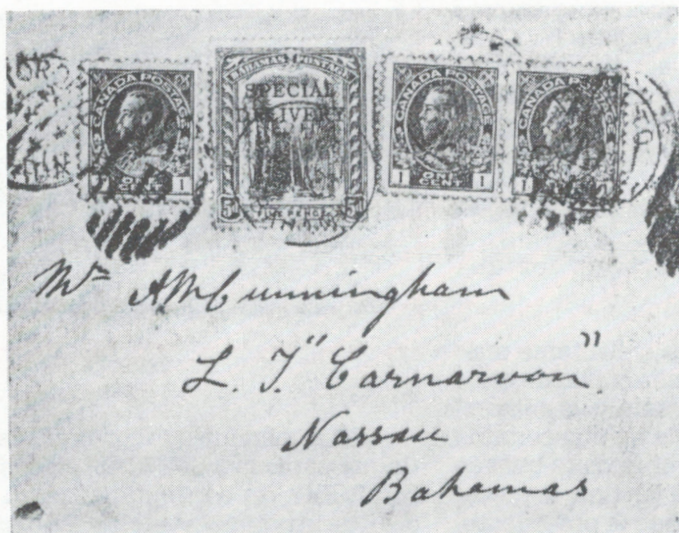 CANADA POSTAGE
ONE CENT
1 1
BAHAMAS POSTAGE
SPECIAL
DELIVERY
FIVE PENCE
CANADA POSTAGE
ONE CENT
1 1
CANADA POSTAGE
CENT
1
Mr AM Cunningham
L. T. "Carnarvon"
Nassau
Bahamas